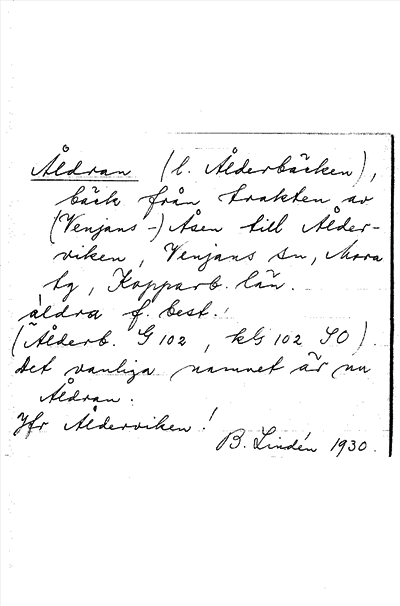 Åldran (l. Ålderbäcken),
bäck från trakten av
(Venjans-) Åsen till Ålder-
viken, Venjans sn, Mora
tg, Kopparb. län.
åldra f. best.
(Ålderb. G 102, kbl 102 SO).
det vanliga namnet är nu
Åldran.
Jfr Ålderviken!
B. Lindén 1930.